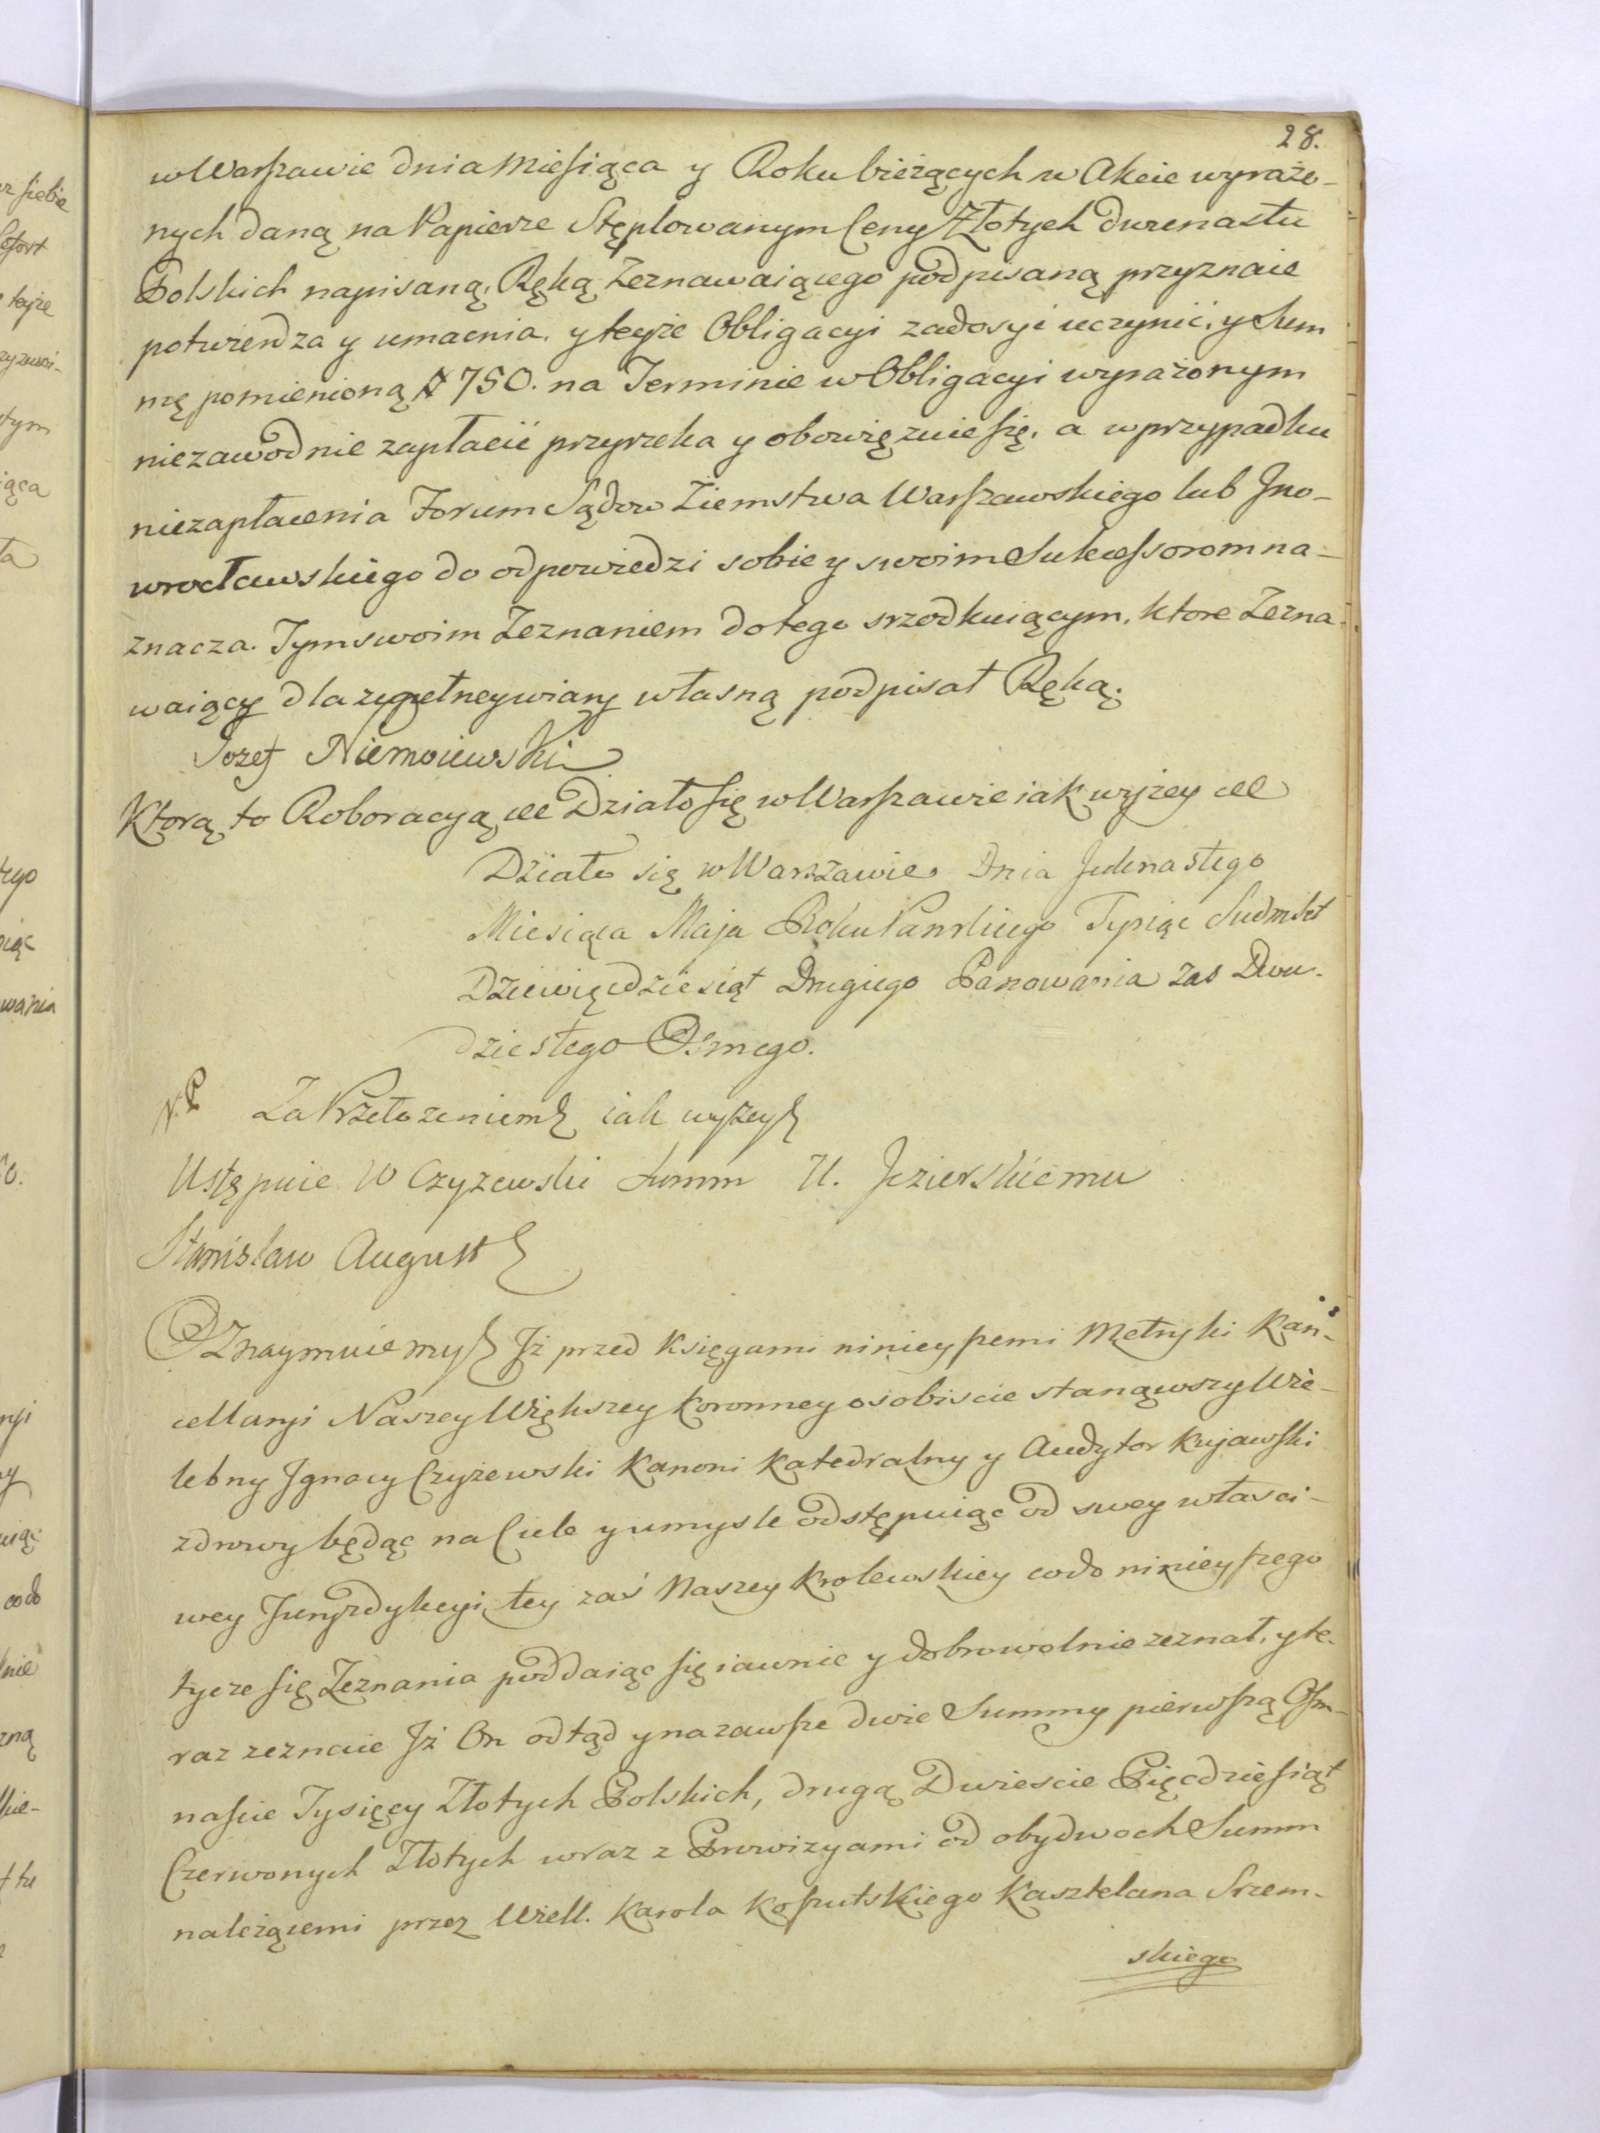 28.
w Warszawie dnia Miesiąca y Roku bieżących w Akcie wyrażo-
nych daną na Papierze Stęplowanym Ceny Złotych dwunastu
Polskich napisaną, Ręką Zeznawaiącego podpisaną przyznaie
potwierdza y umacnia. y teyże Obligacyi zadosyć uczynić, y Sum
mę pomienioną # 750. na Terminie w Obligacyi wyrażonym
niezawodnie zapłacić przyrzeka y obowięzuie się, a w przypadku
niezapłacenia Forum Sądow Ziemstwa Warszawskiego lub Jno-
wrocławskiego do odpowiedzi sobie y swoim Sukcessorom na-
znacza. Tym swoim Zeznaniem do tego srzodkuiącym, ktore Zezna-
waiący dla zupełney wiary własną podpisał Ręką.
Jozef Niemoiewski
Którą to Roboracyą etc Działo się w Warszawie iak wyżey etc
Działo się w Warszawie Dnia Jedenastego
Miesiąca Maja Roku Pańskiego Tysiąc Siedmset
Dziewięćdziesiąt Drugiego Panowania zas Dwu-
dziestego Osmego.
Za Przełożeniem iak wyżey
Ustępuie W Czyżewski Summ U. Jezierskiemu
Stanisław August
Oznaymuiemy Jż przed Księgami ninieyszemi Metryki Kan-
cellaryi Naszey Większey Koronney osobiscie stanąwszy Wie-
lebny Jgnacy Czyżewski Kanoni Katedralny y Audytor Kujawski
zdrowy będąc na Ciele y umysle odstępuiąc od swey własci-
wey Juryzdykcyi, tey zaś Naszey Krolewskiey co do ninieyszego
tycze się Zeznania poddaiąc się iawnie y dobrowolnie zeznał, y te-
raz zeznaie Jż On odtąd y na zawsze dwie Summy pierwszą Osm-
nascie Tysięcy Złotych Polskich, drugą Dwiescie Pięcdziesiąt
Czerwonych Złotych wraz z Prowizyami od obydwoch Summ
należącemi przez Wiell. Karola Koszutskiego Kasztelana Srzem-
skiego